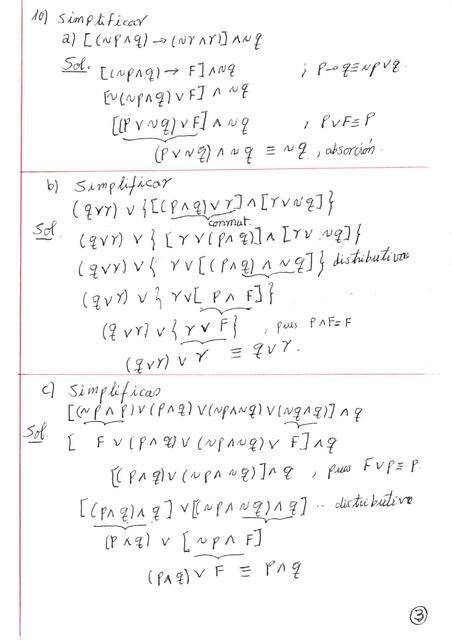 10) Simplificar
a) [(∼p∧q) → (∼r∧r)]∧∼q
Sol. [(∼p∧q)→ F]∧∼q ; p→q≡∼p∨q.
[∼(∼p∧q)∨F] ∧ ∼q
[(p∨∼q)∨F] ∧ ∼q , p∨F≡p
(p∨∼q)∧∼q ≡ ∼q , absorción.
b) Simplificar
(q∨r) ∨ {[(p∧q)∨r]∧[r∨∼q]}
conmut.
Sol. (q∨r) ∨ { [r∨(p∧q)]∧[r∨ ∼q]}
(q∨r) ∨ { r∨[(p∧q)∧∼q]} distributiva
(q∨r) ∨ {r∨[ p∧F]}
(q∨r) ∨ {r∨F} , pues p∧F≡F
(q∨r) ∨ r ≡ q∨r.
c) Simplificas
[(∼p∧p)∨(p∧q)∨(∼p∧∼q)∨(∼q∧q)]∧q
Sol. [ F∨(p∧q)∨(∼p∧∼q)∨ F]∧q
[(p∧q)∨(∼p∧∼q)]∧q , pues F∨p≡p.
[(p∧q)∧q]∨[(∼p∧∼q)∧q] .. distributiva
(p∧q) ∨ [∼p∧F]
(p∧q)∨F ≡ p∧q
3